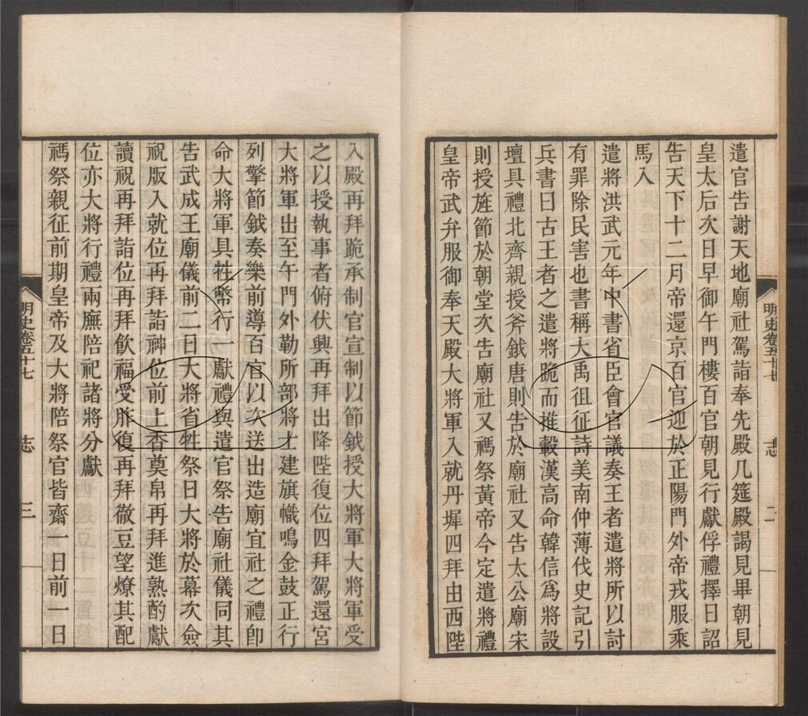 遣官告謝天地廟社駕詣奉先殿几筵殿謁見畢朝見
皇太后次日早御午門樓百官朝見行獻俘禮擇日詔
告天下十二月帝還京百官迎於正陽門外帝戎服乘
馬入
遣將洪武元年中書省臣會官議奏王者遣將所以討
有罪除民害也書稱大禹徂征詩美南仲薄伐史記引
兵書曰古王者之遣將跪而推轂漢高命韓信為將設
壇具禮北齊親授斧鉞唐則告於廟社又告太公廟宋
則授旌節於朝堂次告廟社又禡祭黃帝今定遣將禮
皇帝武弁服御奉天殿大將軍入就丹墀四拜由西陛
明史卷五十七 志 二
入殿再拜跪承制官宣制以節鉞授大將軍大將軍受
之以授執事者俯伏興再拜出降陛復位四拜駕還宮
大將軍出至午門外勒所部將士建旗幟鳴金鼓正行
列擎節鉞奏樂前導百官以次送出造廟宜社之禮即
命大將軍具牲幣行一獻禮與遣官祭告廟社儀同其
告武成王廟儀前二日大將省牲祭日大將於幕次僉
祝版入就位再拜詣神位前上香奠帛再拜進熟酌獻
讀祝再拜詣位再拜飲福受胙復再拜徹豆望燎其配
位亦大將行禮兩廡陪祀諸將分獻
禡祭親征前期皇帝及大將陪祭官皆齋一日前一日
明史卷五十七 志 三